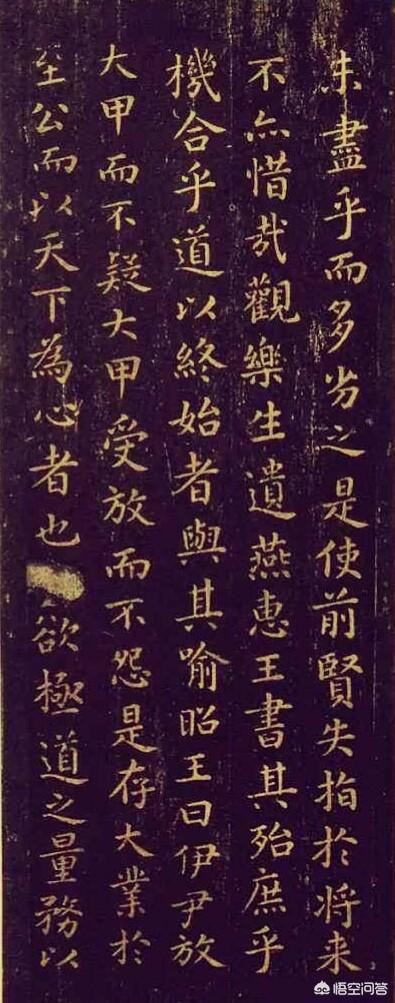 未盡乎而多劣之是使前賢失指於将来
不亦惜哉觀樂生遺燕惠王書其殆庶乎
機合乎道以終始者與其喻昭王曰伊尹放
大甲而不疑大甲受放而不怨是存大業於
至公而以天下為心者也欲極道之量務以
悟空问答